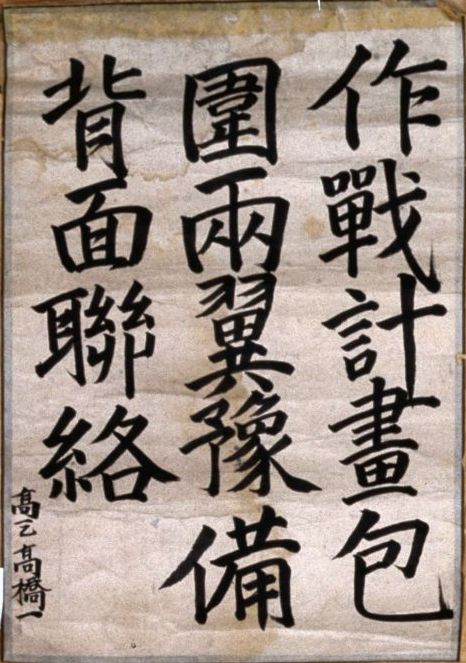 作戰計畫包
圍兩翼豫備
背面聯絡
高乙高橋一